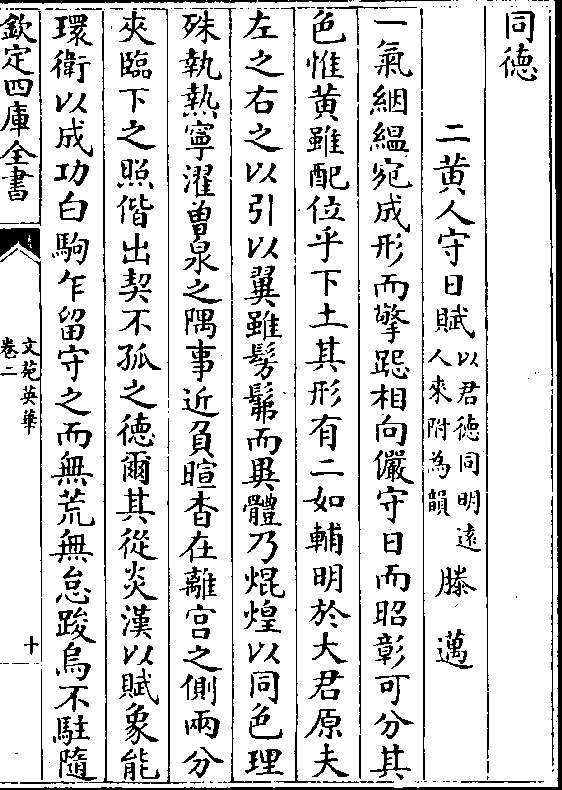 同德
二黄人守日賦以君德同明遠人來附為韻 滕邁
一氣絪縕宛成形而擎跽相向儼守日而昭彰可分其
色惟黄雖配位乎下土其形有二如輔明於大君原夫
左之右之以引以翼雖髣髴而異體乃焜煌以同色理
殊執熱寧濯曽泉之隅事近負暄杳在離宫之側兩分
夾臨下之照偕出契不孤之德爾其從炎漢以賦象能
環衛以成功白駒乍留守之而無荒無怠踆烏不駐隨
欽定四庫全書
文苑英華
卷二
十